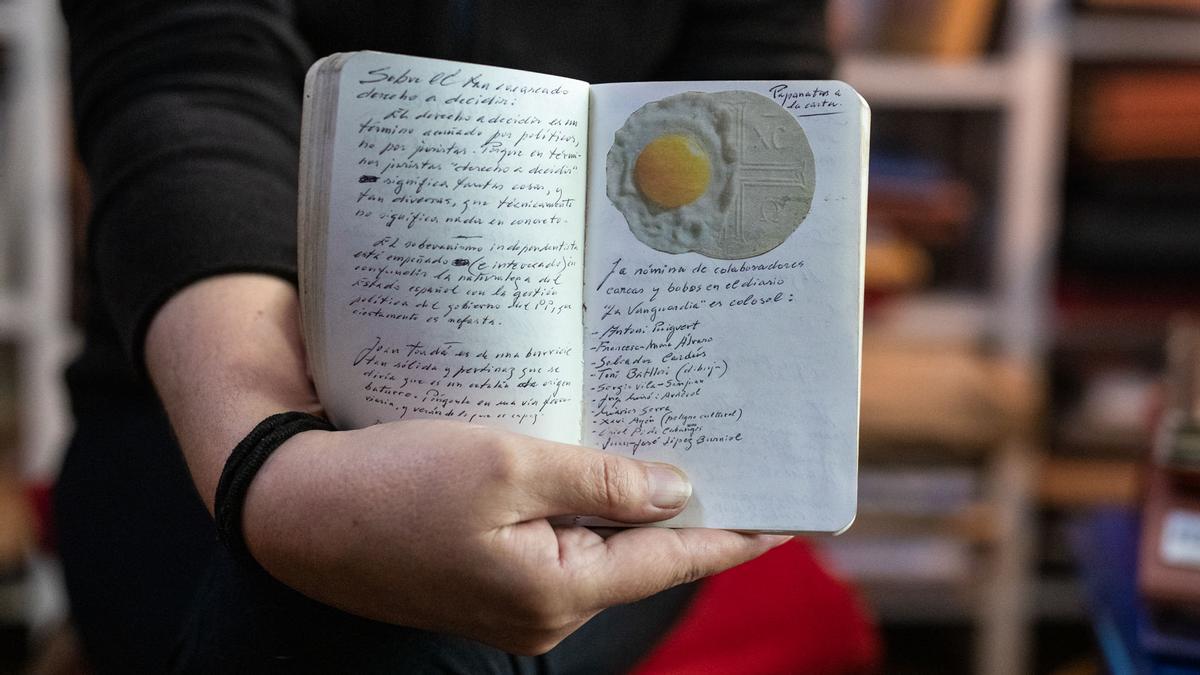 Sobre el tan cacareado
derecho a decidir:
El derecho a decidir es un
término acuñado por políticos,
no por juristas. Porque en térmi-
nos juristas "derecho a decidir"
significa tantas cosas, y
tan diversas, que técnicamente
no significa nada en concreto.
El soberanismo independentista
está empeñado (e interesado) en
confundir la naturaleza del
Estado español con la gestión
política del gobierno del PP, que
ciertamente es nefasta.
Joan Tardá es de una burricie
tan sólida y pertinaz que se
diría que es un catalán de origen
baturro. Póngante en una vía ferro-
viaria, y verán de lo que es capaz.
Papanatas a
la carta.
La nómina de colaboradores
carcas y bobos en el diario
"La Vanguardia" es colosal:
- Antoni Puigverd
- Francesc-Marc Álvaro
- Salvador Cardús
- Toni Batllori (dibuja)
- Sergio Vila-Sanjuán
- Màrius Serra
- Xavi Ayén (peligro cultural)
- Oriol Pi de Cabanyes
- Juan-José López Burniol